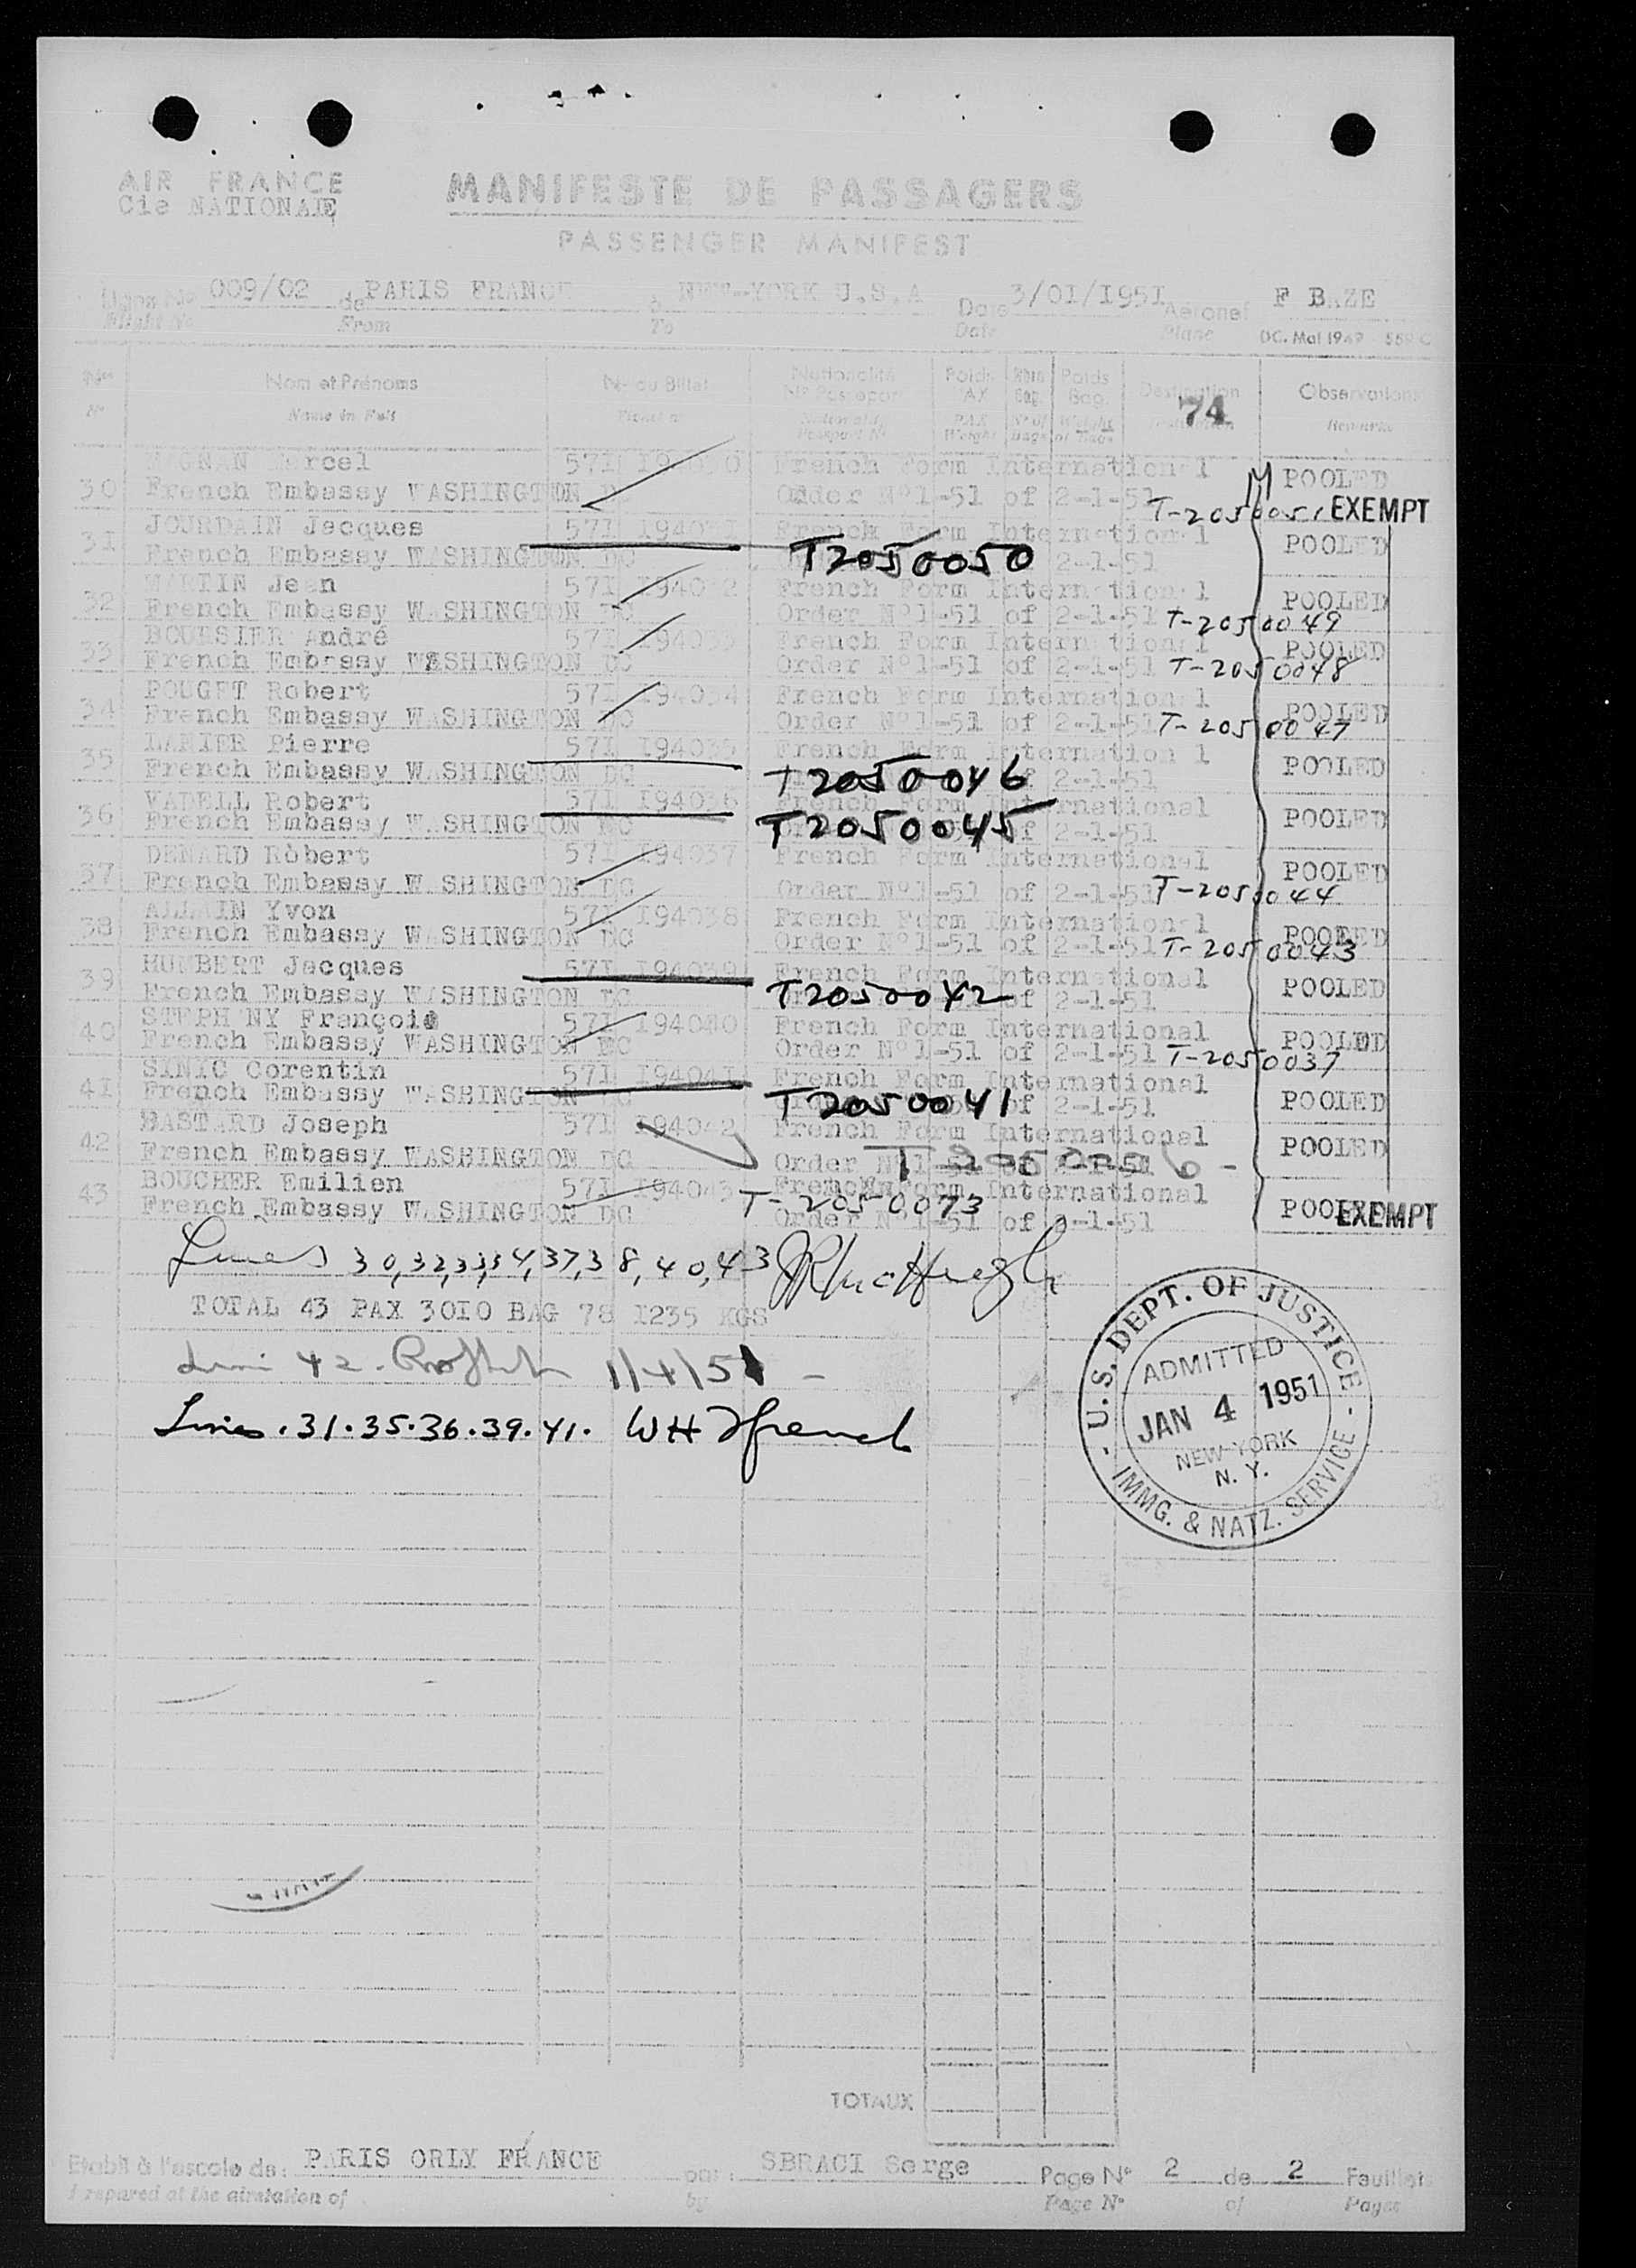 AIR FRANCE
Cie NATIONALE
MANIFESTE DE PASSAGERS
PASSENGER MANIFEST
Ligne No 009/02 de PARIS FRANCE à NEW-YORK U.S.A Date 3/01/1951 Aéronef F BAZE
Flight No From To Date Plane DC. Mai 1949
Nos Nom et Prénoms No du Billet Nationalité Poids Nbre Poids Destination Observations
No Passeport PAX Bag. Bag.
No Name in Full Ticket no Nationality PAX No of Weight 74 Remarks
Passport No Weight bags of bags
Marcel 571 French Form International POOLED
30 French Embassy WASHINGTON DC Order No1-51 of 2-1-51 T-2050051 EXEMPT
JOURDAIN Jacques 571 French Form International POOLED
31 French Embassy WASHINGTON DC T2050050 2-1-51
MARTIN Jean 571 194032 French Form International POOLED
32 French Embassy WASHINGTON DC Order No1-51 of 2-1-51 T-2050049
André 571 194033 French Form International POOLED
33 French Embassy WASHINGTON DC Order No1-51 of 2-1-51 T-2050048
POUGET Robert 571 194034 French Form International POOLED
34 French Embassy WASHINGTON DC Order No1-51 of 2-1-51 T-2050047
Pierre 571 194035 French Form International POOLED
35 French Embassy WASHINGTON DC T2050046 2-1-51
VADELL Robert 571 194036 French Form International POOLED
36 French Embassy WASHINGTON DC T2050045 of 2-1-51
DENARD Robert 571 194037 French Form International POOLED
37 French Embassy WASHINGTON DC Order No1-51 of 2-1-51 T-2050044
ALLAIN Yvon 571 194038 French Form International POOLED
38 French Embassy WASHINGTON DC Order No1-51 of 2-1-51 T-2050043
HUMBERT Jacques 571 194039 French Form International POOLED
39 French Embassy WASHINGTON DC T2050042 of 2-1-51
STEPHANY François 571 194040 French Form International POOLED
40 French Embassy WASHINGTON DC Order No1-51 of 2-1-51 T-2050037
SINIC Corentin 571 194041 French Form International POOLED
41 French Embassy WASHINGTON DC T2050041 of 2-1-51
BASTARD Joseph 571 194042 French Form International POOLED
42 French Embassy WASHINGTON DC Order
BOUCHER Emilien 571 194043 T-2050073 French Form International POOLED EXEMPT
43 French Embassy WASHINGTON DC Order No1-51 of 2-1-51
Lines 30,32,33,34,37,38,40,43
TOTAL 43 PAX 3010 BAG 78 1235 KGS
42 1/4/51
Lines.31.35.36.39.41. WH French
- U.S. DEPT. OF JUSTICE -
ADMITTED
JAN 4 1951
NEW YORK
N. Y.
IMMG. & NATZ. SERVICE
TOTAUX
Etabli à l'escale de: PARIS ORLY FRANCE par: SBRACI Serge Page No 2 de 2 Feuillets
Prepared at the airstation of by Page No of Pages